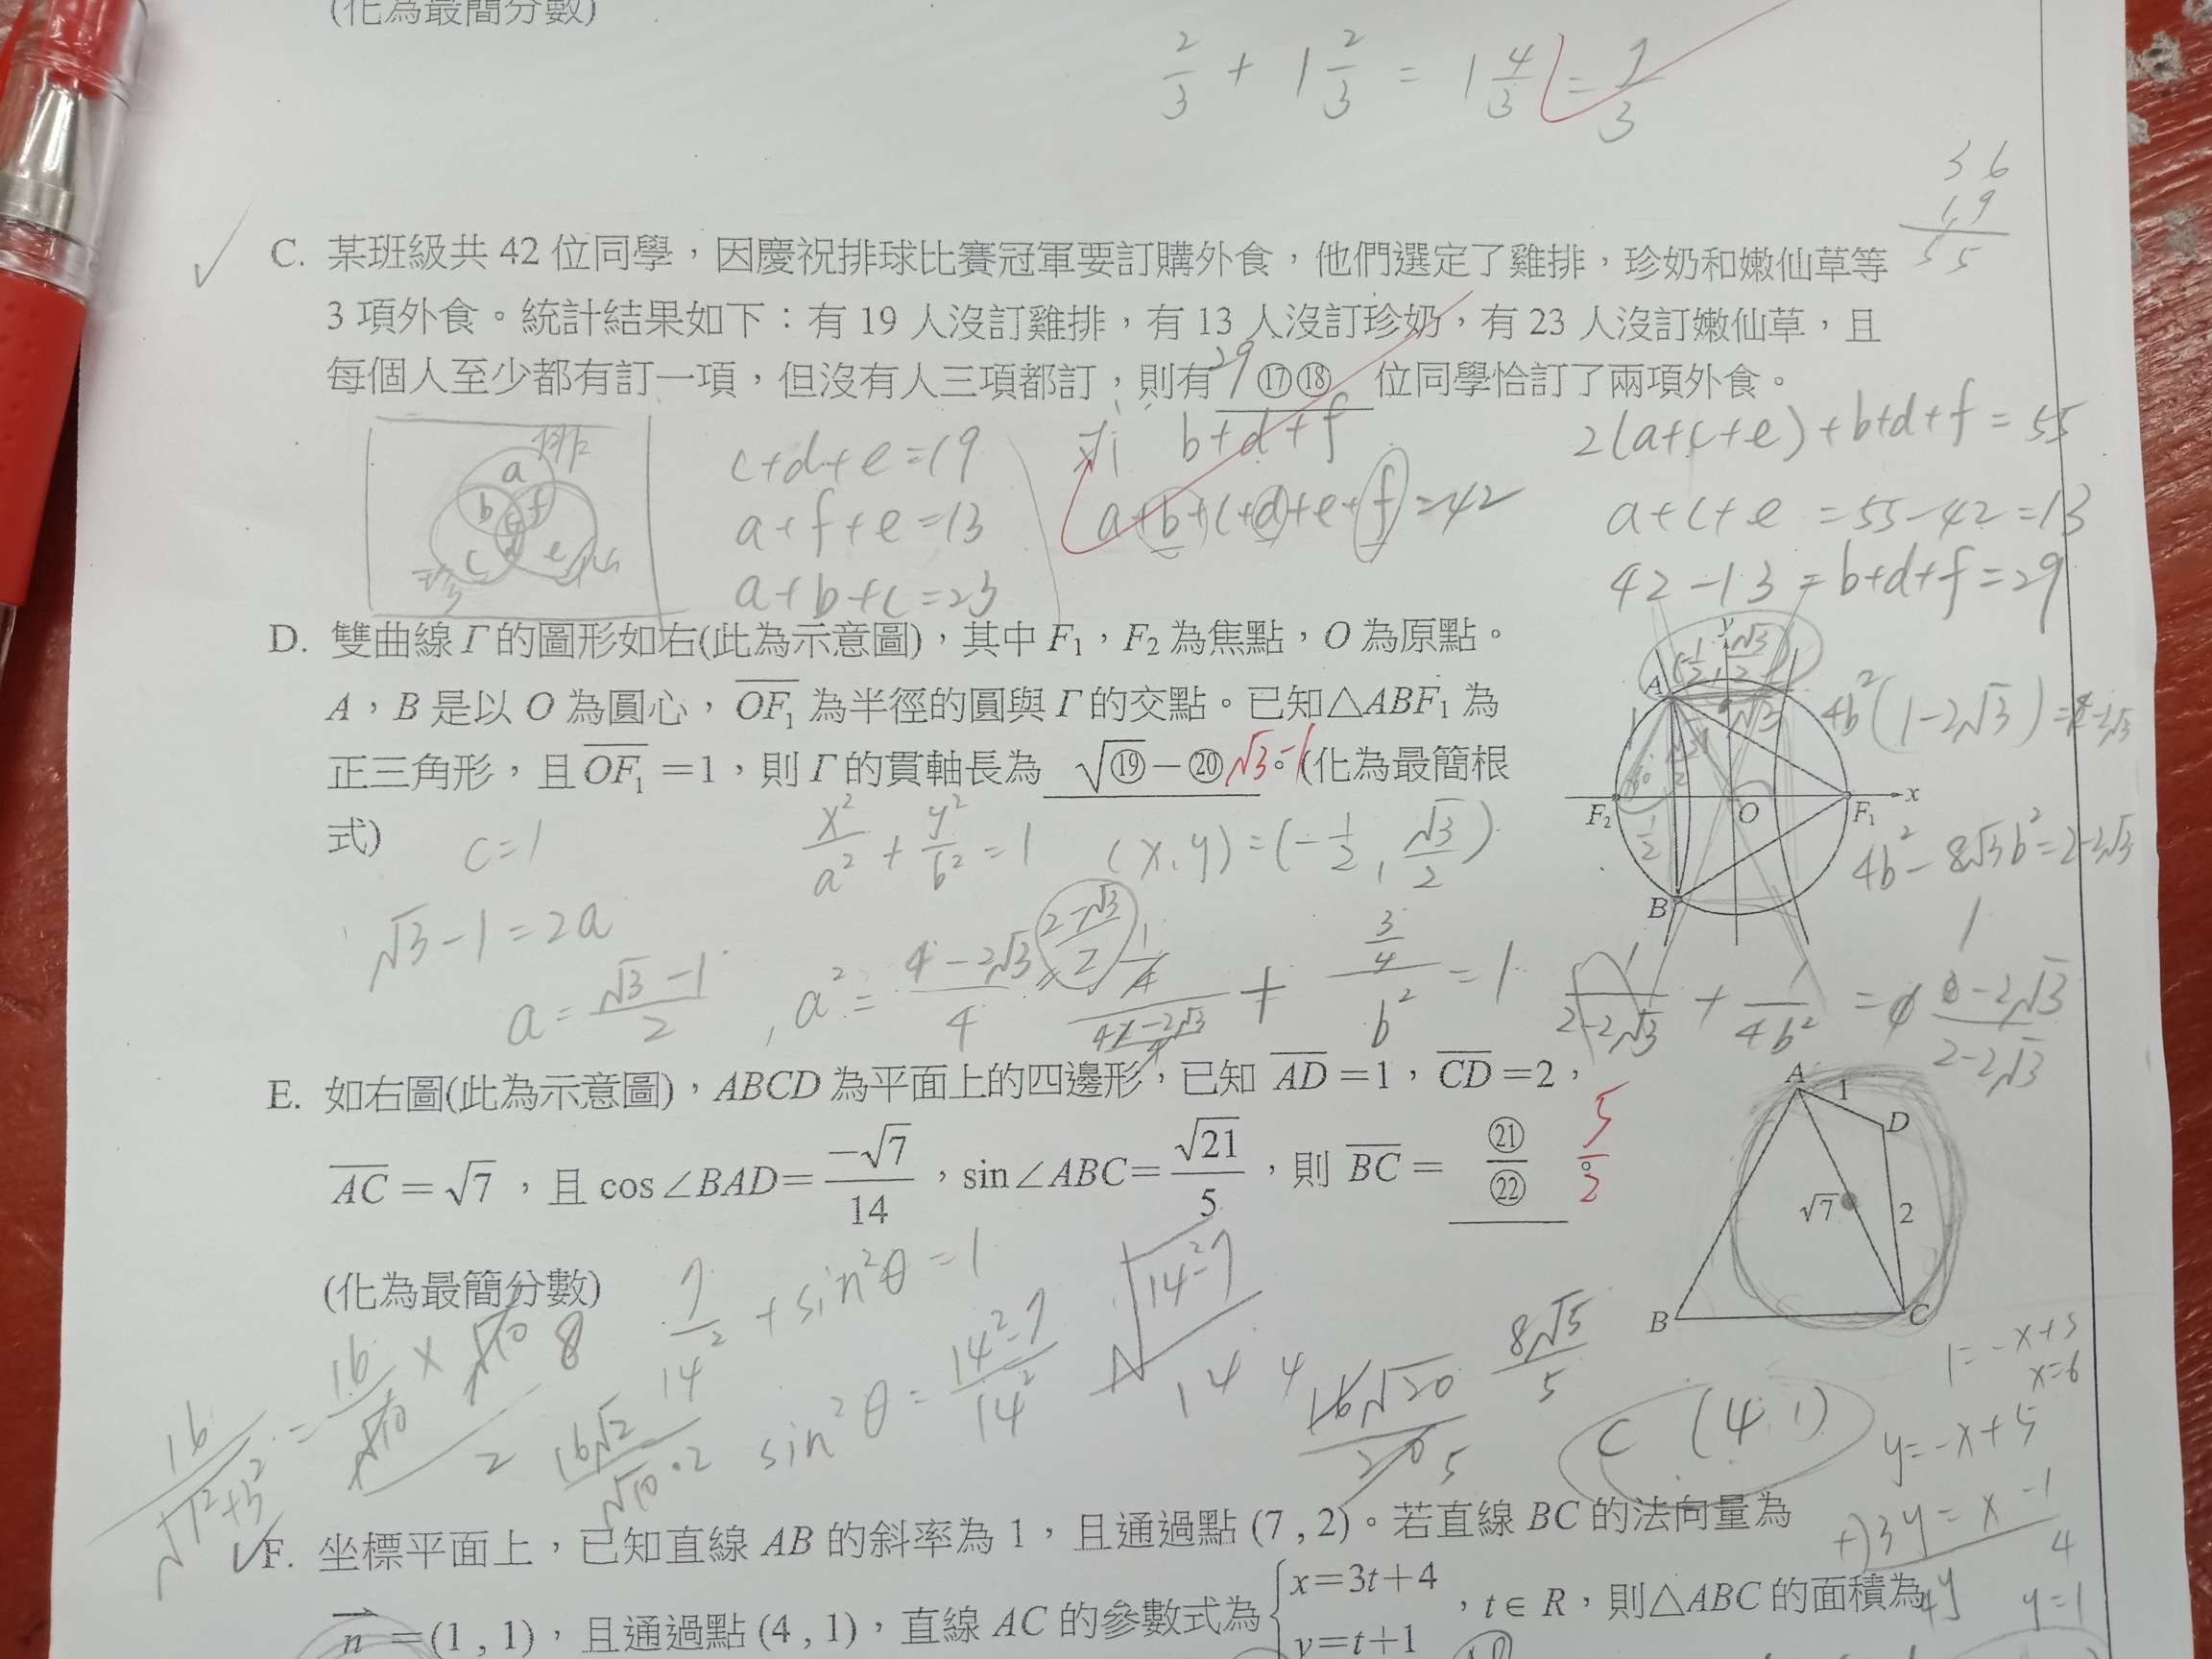 (化為最簡分數)
2/3 + 1 2/3 = 1 4/3 = 7/3
36
19
55
C. 某班級共 42 位同學，因慶祝排球比賽冠軍要訂購外食，他們選定了雞排，珍奶和嫩仙草等
3 項外食。統計結果如下：有 19 人沒訂雞排，有 13 人沒訂珍奶，有 23 人沒訂嫩仙草，且
每個人至少都有訂一項，但沒有人三項都訂，則有 29 ⑰⑱ 位同學恰訂了兩項外食。
排 a b f c e 珍
c+d+e=19
a+f+e=13
a+b+c=23
求 b+d+f
a+b+c+d+e+f=42
2(a+c+e)+b+d+f=55
a+c+e=55-42=13
42-13=b+d+f=29
D. 雙曲線 Γ 的圖形如右(此為示意圖)，其中 F₁，F₂ 為焦點，O 為原點。
A，B 是以 O 為圓心，OF₁ 為半徑的圓與 Γ 的交點。已知△ABF₁ 為
正三角形，且 OF₁ =1，則 Γ 的貫軸長為 √⑲－⑳ √3-1 。(化為最簡根
式)
y
A
F₂ O F₁ x
B
4b²(1-2√3)=
4b²-8√3b²=2-2√3
c=1
x²/a² + y²/b² = 1
(x,y)=(-1/2, √3/2)
√3-1=2a
a=(√3-1)/2, a²=(4-2√3)/4
(2-√3)/2
(3/4)/b² = 1
1/(2-2√3) + 1/4b² =
E. 如右圖(此為示意圖)，ABCD 為平面上的四邊形，已知 AD =1，CD =2，
AC = √7 ，且 cos∠BAD= －√7/14 ，sin∠ABC= √21/5 ，則 BC = ㉑/㉒ 。 5/2
(化為最簡分數)
A 1 D
√7 2
B C
7/14² + sin²θ = 1
sin²θ = (14²-7)/14²
√(14²-7)/14
16/√(1²+3²) = 16/√10 × √10 8
16√2/√10·2
16√20/20 8√5/5
C (4,1)
1=-x+5
x=6
y=-x+5
+)3y=x-1
4y 4
y=1
F. 坐標平面上，已知直線 AB 的斜率為 1，且通過點 (7 , 2)。若直線 BC 的法向量為
n =(1 , 1)，且通過點 (4 , 1)，直線 AC 的參數式為 { x=3t+4 y=t+1 ，t∈R，則△ABC 的面積為